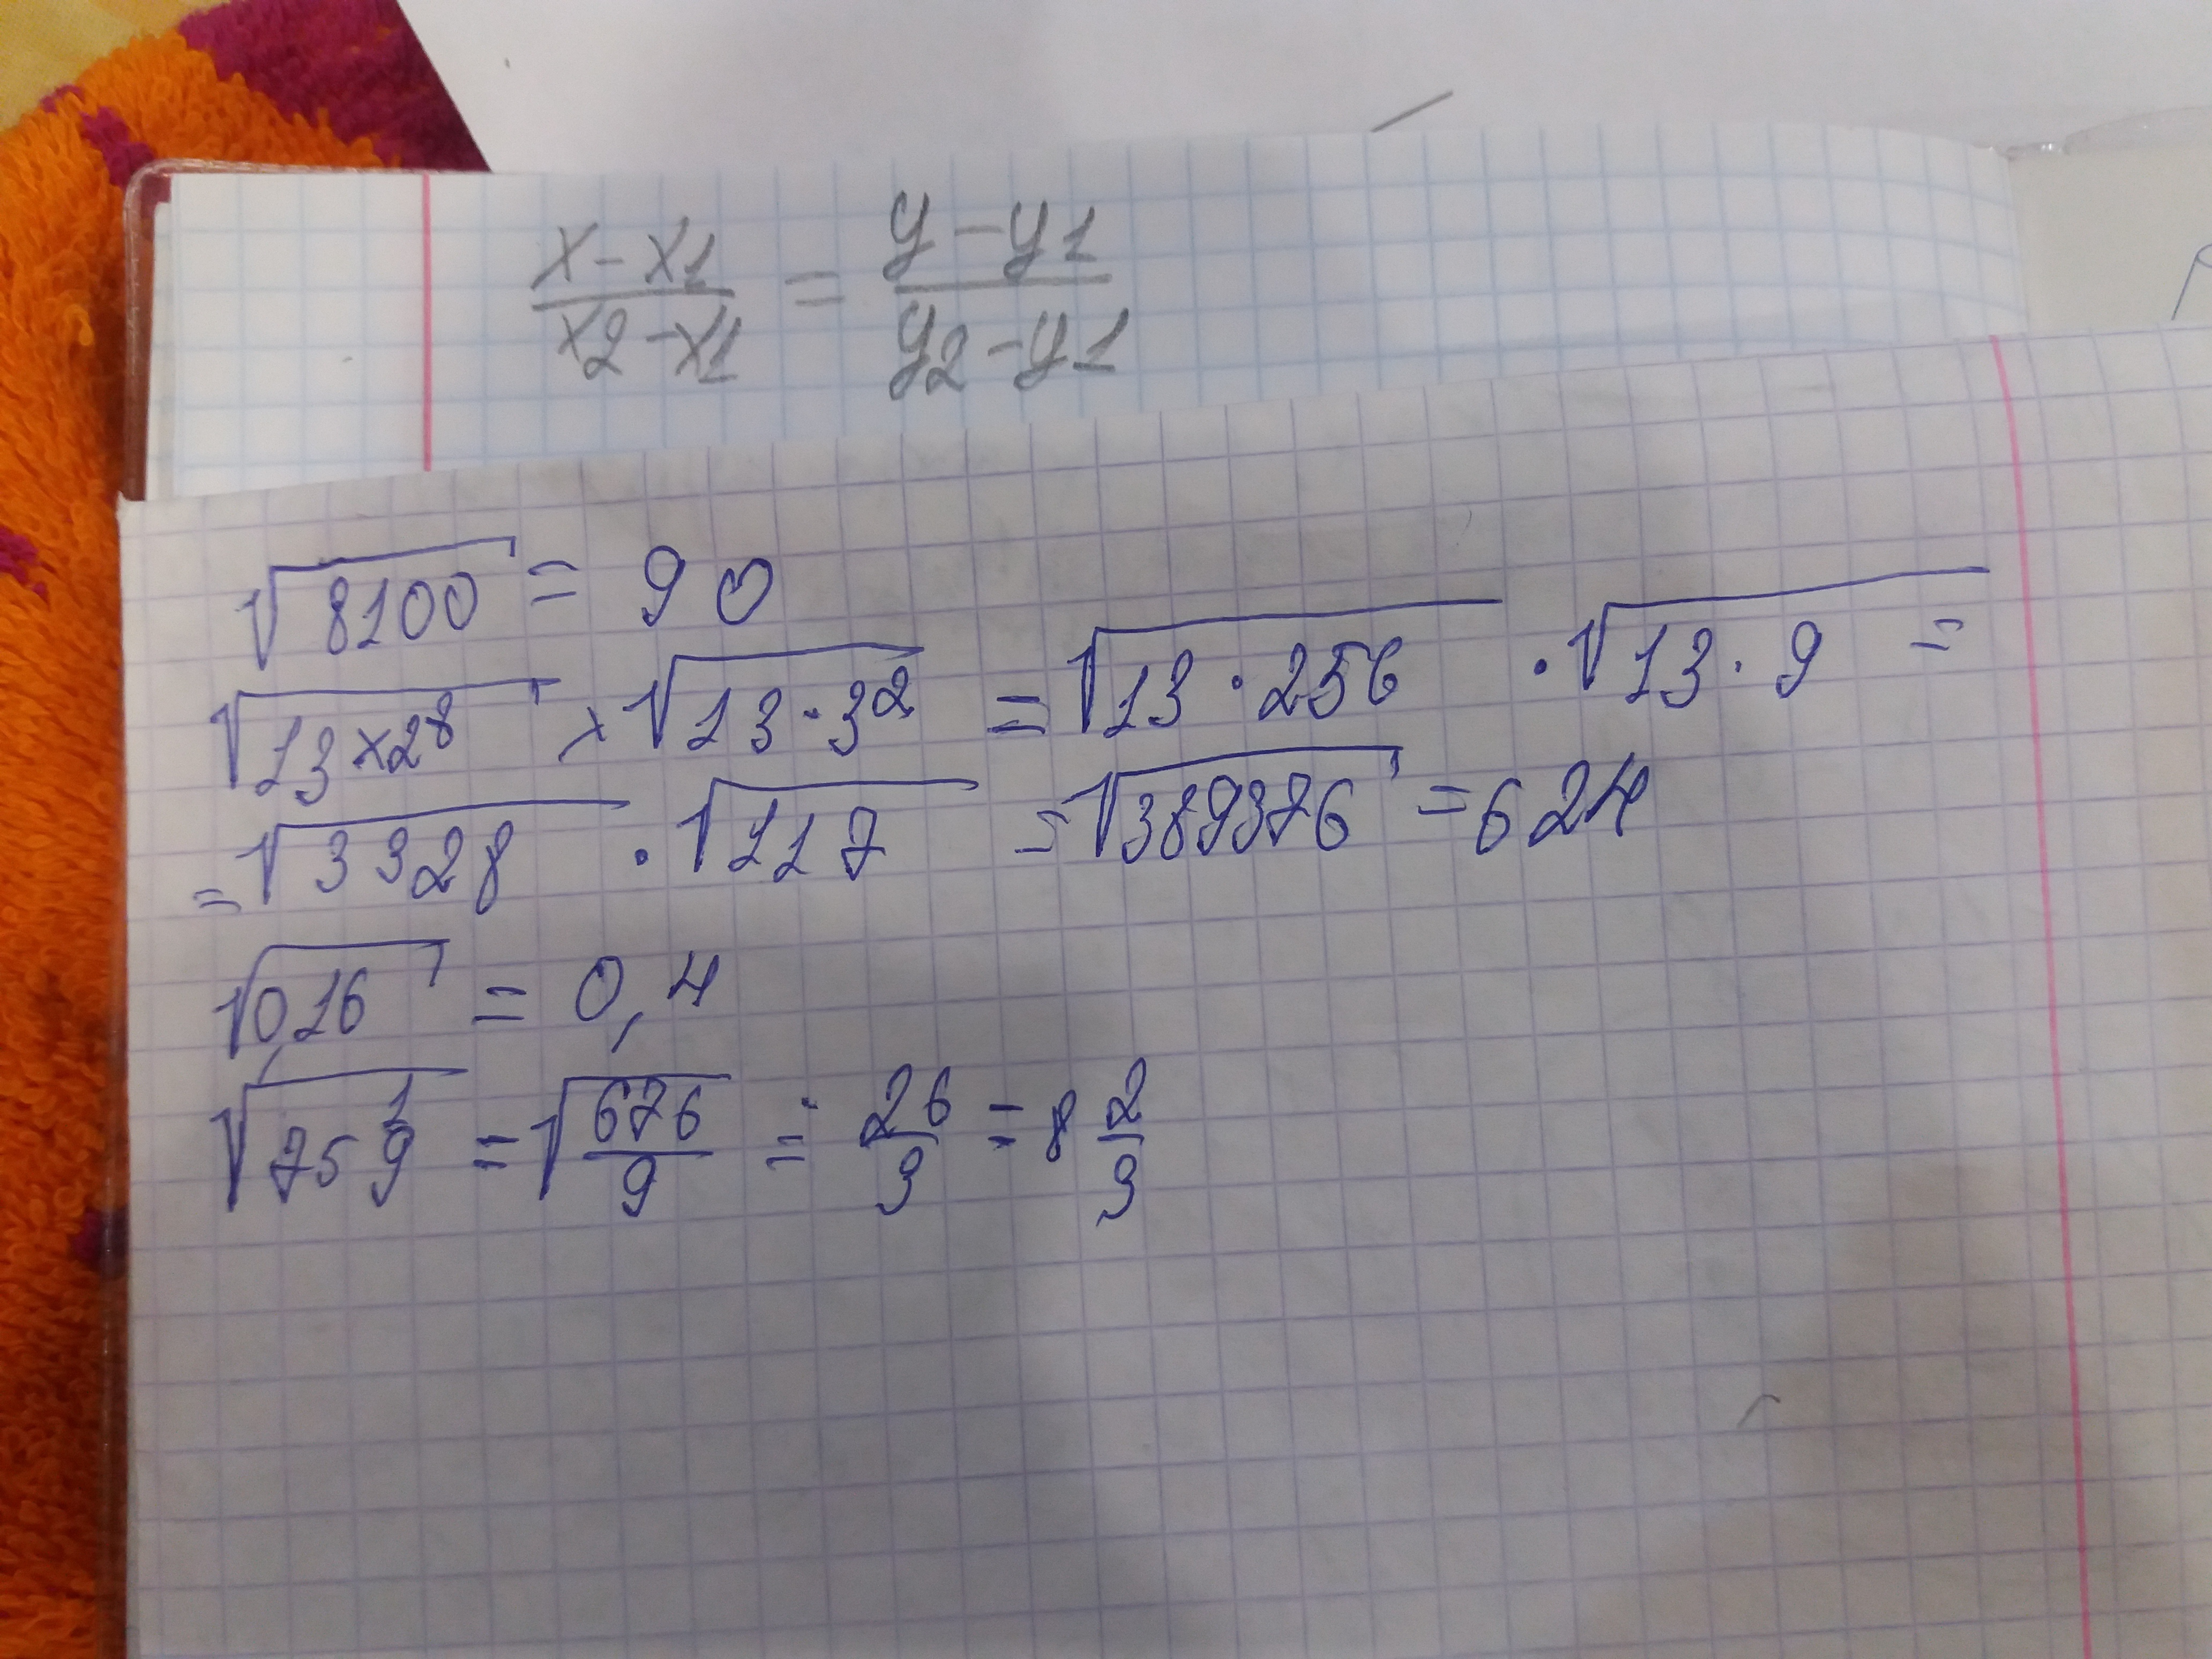 x-x1/x2-x1 = y-y1/y2-y1
√8100 = 90
√13×2⁸ × √13·3² = √13·256 · √13·9 =
= √3328 · √117 = √389376 = 624
√0,16 = 0,4
√75 1/9 = √676/9 = 26/3 = 8 2/3